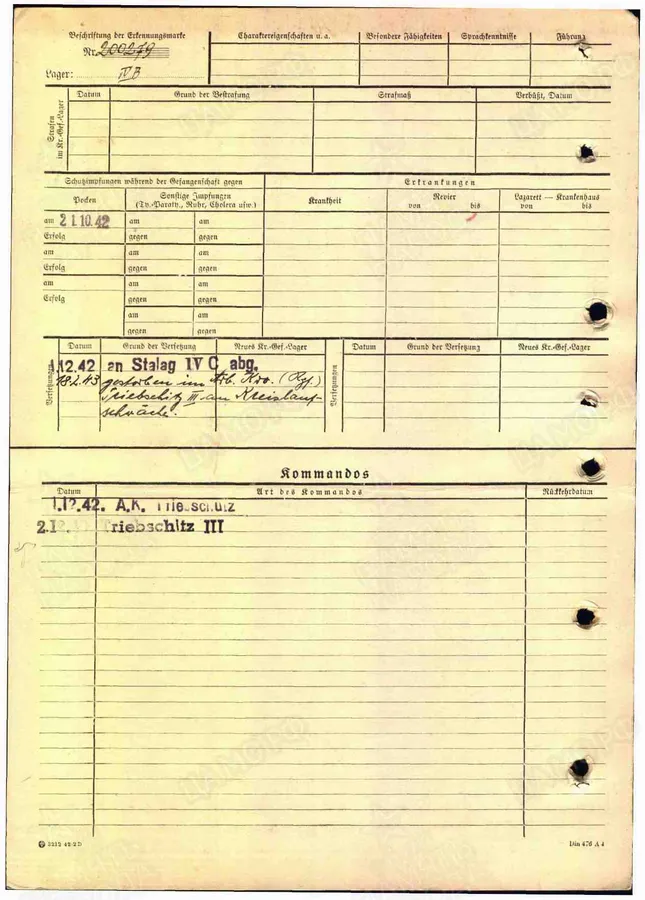 Beschriftung der Erkennungsmarke
Nr. 200279
Lager: IV B
Charaktereigenschaften u. a.
Besondere Fähigkeiten
Sprachkenntnisse
Führung
Strafen im Kr.-Gef.-Lager
Datum
Grund der Bestrafung
Strafmaß
Verbüßt, Datum
Schutzimpfungen während der Gefangenschaft gegen
Erkrankungen
Pocken
Sonstige Impfungen
(Ty.-Paraty., Ruhr, Cholera usw.)
Krankheit
Revier
von bis
Lazarett — Krankenhaus
von bis
am 21.10.42 am am
Erfolg gegen gegen
am am am
Erfolg gegen gegen
am am am
Erfolg gegen gegen
am am
gegen gegen
Versetzungen
Datum Grund der Versetzung Neues Kr.-Gef.-Lager
1.12.42 an Stalag IV C abg.
18.2.43 gestorben im Arb. Kdo. (Rgf.)
Triebschitz III an Kreislauf-
schwäche.
Versetzungen
Datum Grund der Versetzung Neues Kr.-Gef.-Lager
Kommandos
Datum Art des Kommandos Rückkehrdatum
1.12.42. A.K. Triebschitz
Triebschitz III
Din 476 A 4
ЦАМО РФ